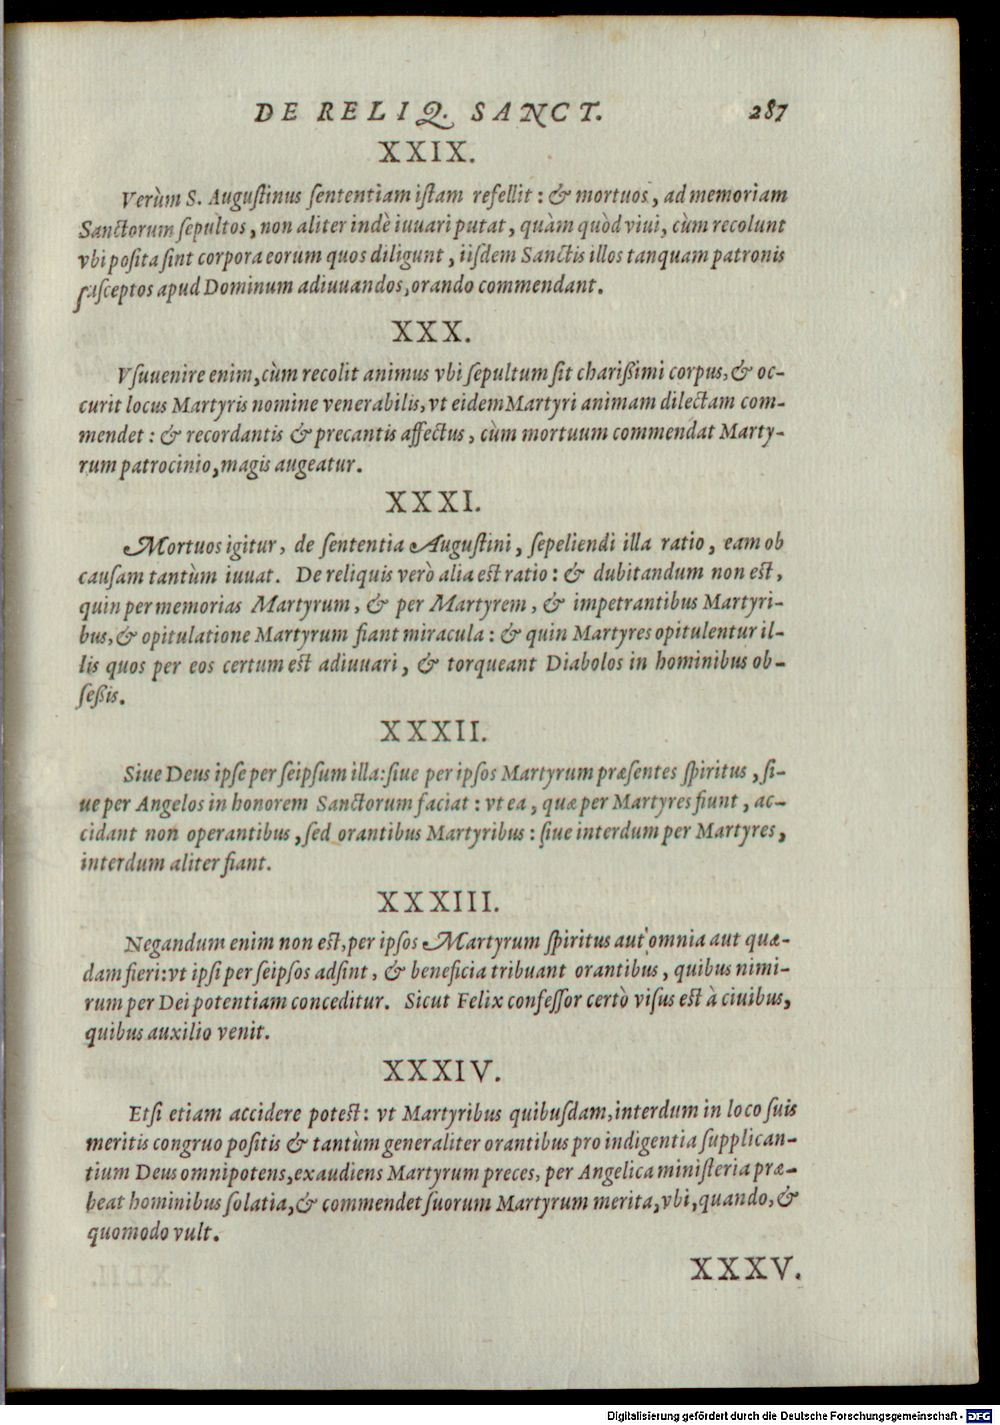 DE RELIQ. SANCT. 287
XXIX.
Verùm S. Augustinus sententiam istam refellit: & mortuos, ad memoriam
Sanctorum sepultos, non aliter indè iuuari putat, quàm quòd viui, cùm recolunt
vbi posita sint corpora eorum quos diligunt, iisdem Sanctis illos tanquam patronis
susceptos apud Dominum adiuuandos, orando commendant.
XXX.
Vsuuenire enim, cùm recolit animus vbi sepultum sit charißimi corpus, & oc-
curit locus Martyris nomine venerabilis, vt eidem Martyri animam dilectam com-
mendet: & recordantis & precantis affectus, cùm mortuum commendat Marty-
rum patrocinio, magis augeatur.
XXXI.
Mortuos igitur, de sententia Augustini, sepeliendi illa ratio, eam ob
causam tantùm iuuat. De reliquis verò alia est ratio: & dubitandum non est,
quin per memorias Martyrum, & per Martyrem, & impetrantibus Martyri-
bus, & opitulatione Martyrum fiant miracula: & quin Martyres opitulentur il-
lis quos per eos certum est adiuuari, & torqueant Diabolos in hominibus ob-
seßis.
XXXII.
Siue Deus ipse per seipsum illa: siue per ipsos Martyrum præsentes spiritus, si-
ue per Angelos in honorem Sanctorum faciat: vt ea, quæ per Martyres fiunt, ac-
cidant non operantibus, sed orantibus Martyribus: siue interdum per Martyres,
interdum aliter fiant.
XXXIII.
Negandum enim non est, per ipsos Martyrum spiritus aut omnia aut quæ-
dam fieri: vt ipsi per seipsos adsint, & beneficia tribuant orantibus, quibus nimi-
rum per Dei potentiam conceditur. Sicut Felix confessor certò visus est à ciuibus,
quibus auxilio venit.
XXXIV.
Etsi etiam accidere potest: vt Martyribus quibusdam, interdum in loco suis
meritis congruo positis & tantùm generaliter orantibus pro indigentia supplican-
tium Deus omnipotens, exaudiens Martyrum preces, per Angelica ministeria præ-
beat hominibus solatia, & commendet suorum Martyrum merita, vbi, quando, &
quomodo vult.
XXXV.
Digitalisierung gefördert durch die Deutsche Forschungsgemeinschaft - DFG